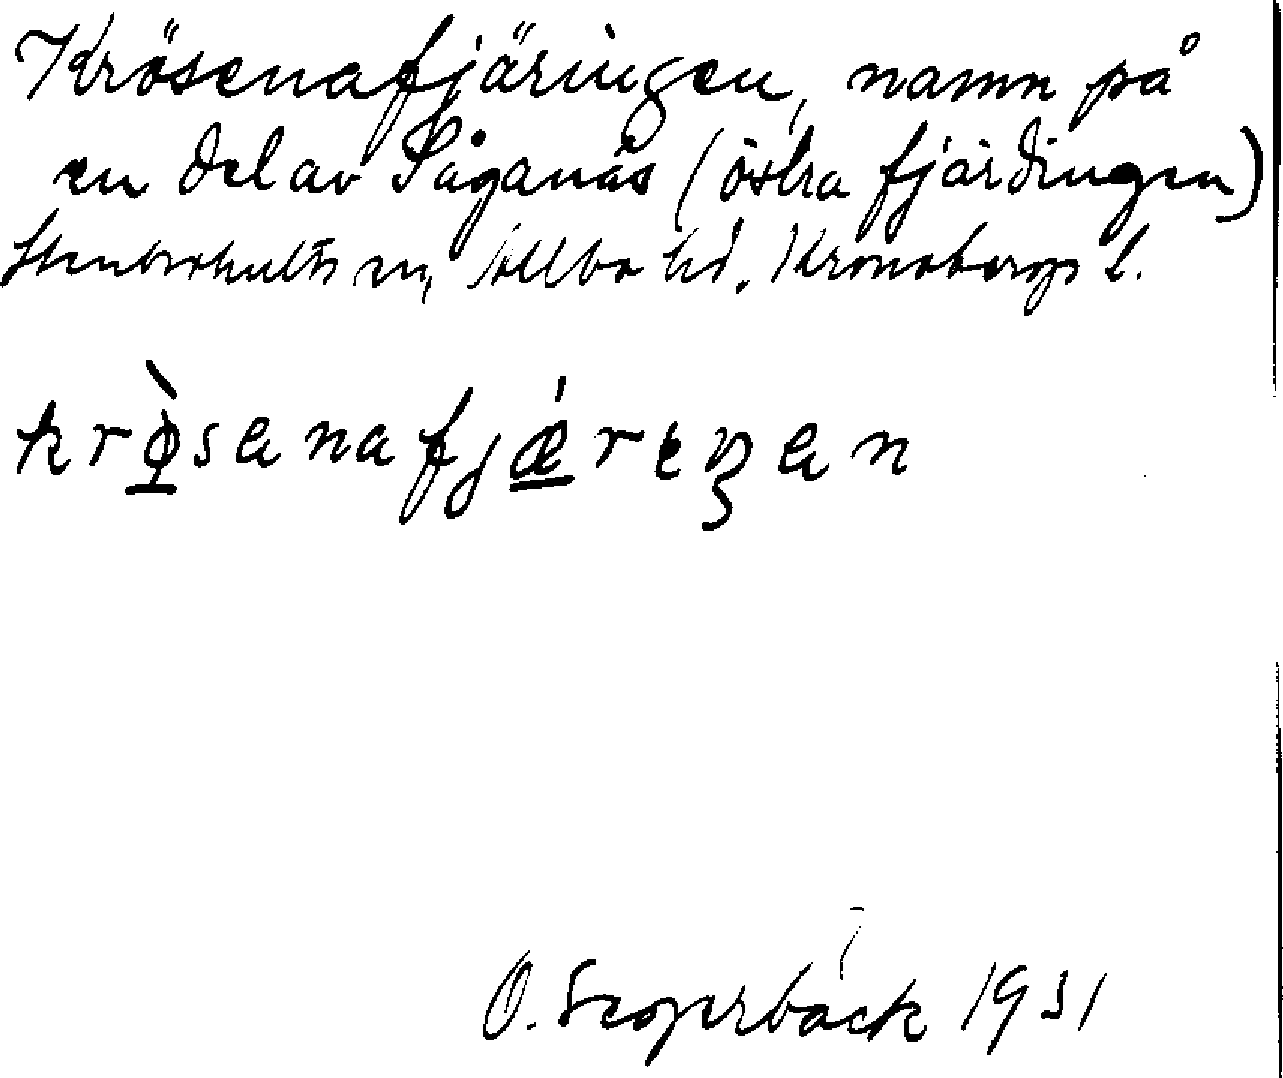 Krösenafjäringen, namn på
en del av Såganäs (östra fjärdingen)
Stenbrohults sn, Allbo hd. Kronobergs l.
krø̀sənafjǽrɩŋən
O. Segerbäck 1931